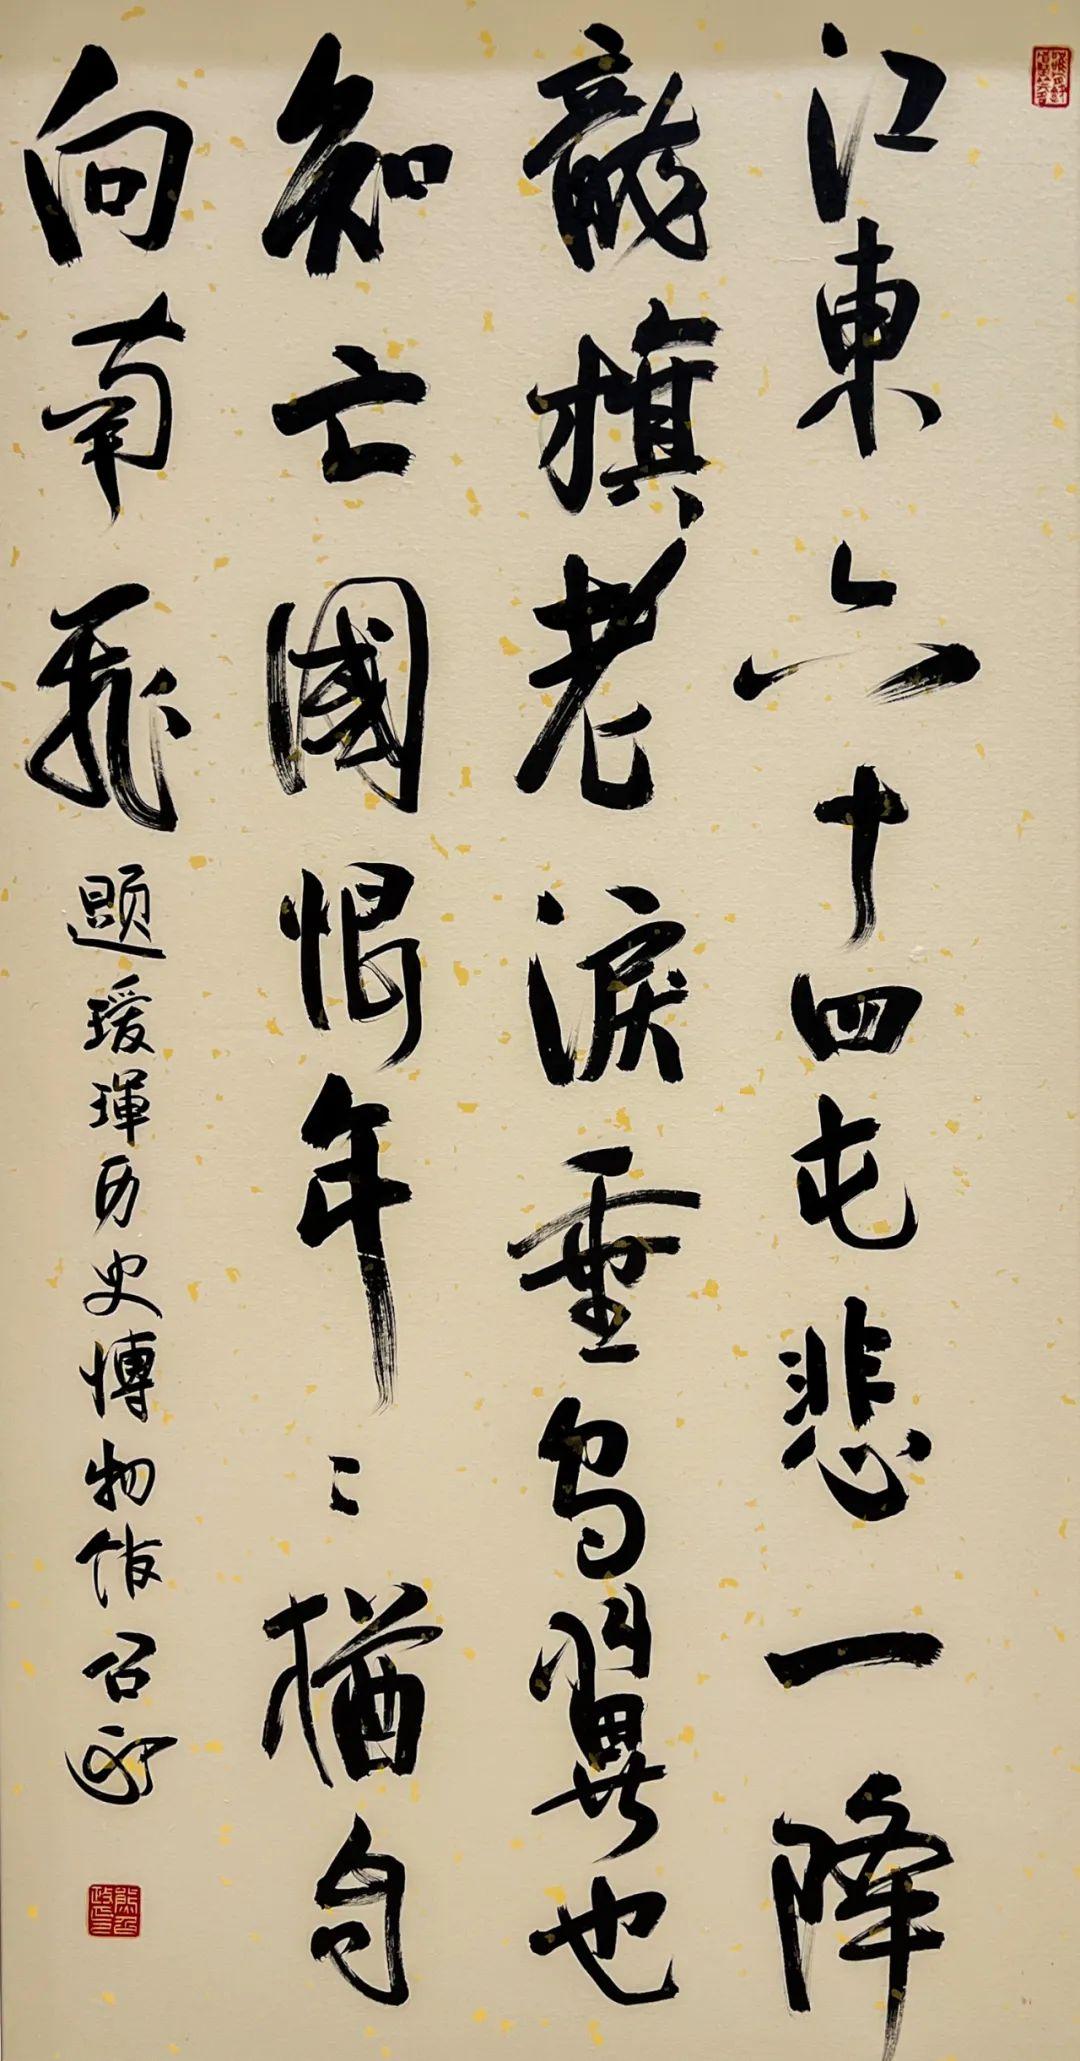 江東六十四屯悲一降
龍旗老淚垂鳥翼也
知亡國恨年〻猶自
向南飛
題瑷琿历史博物馆召政